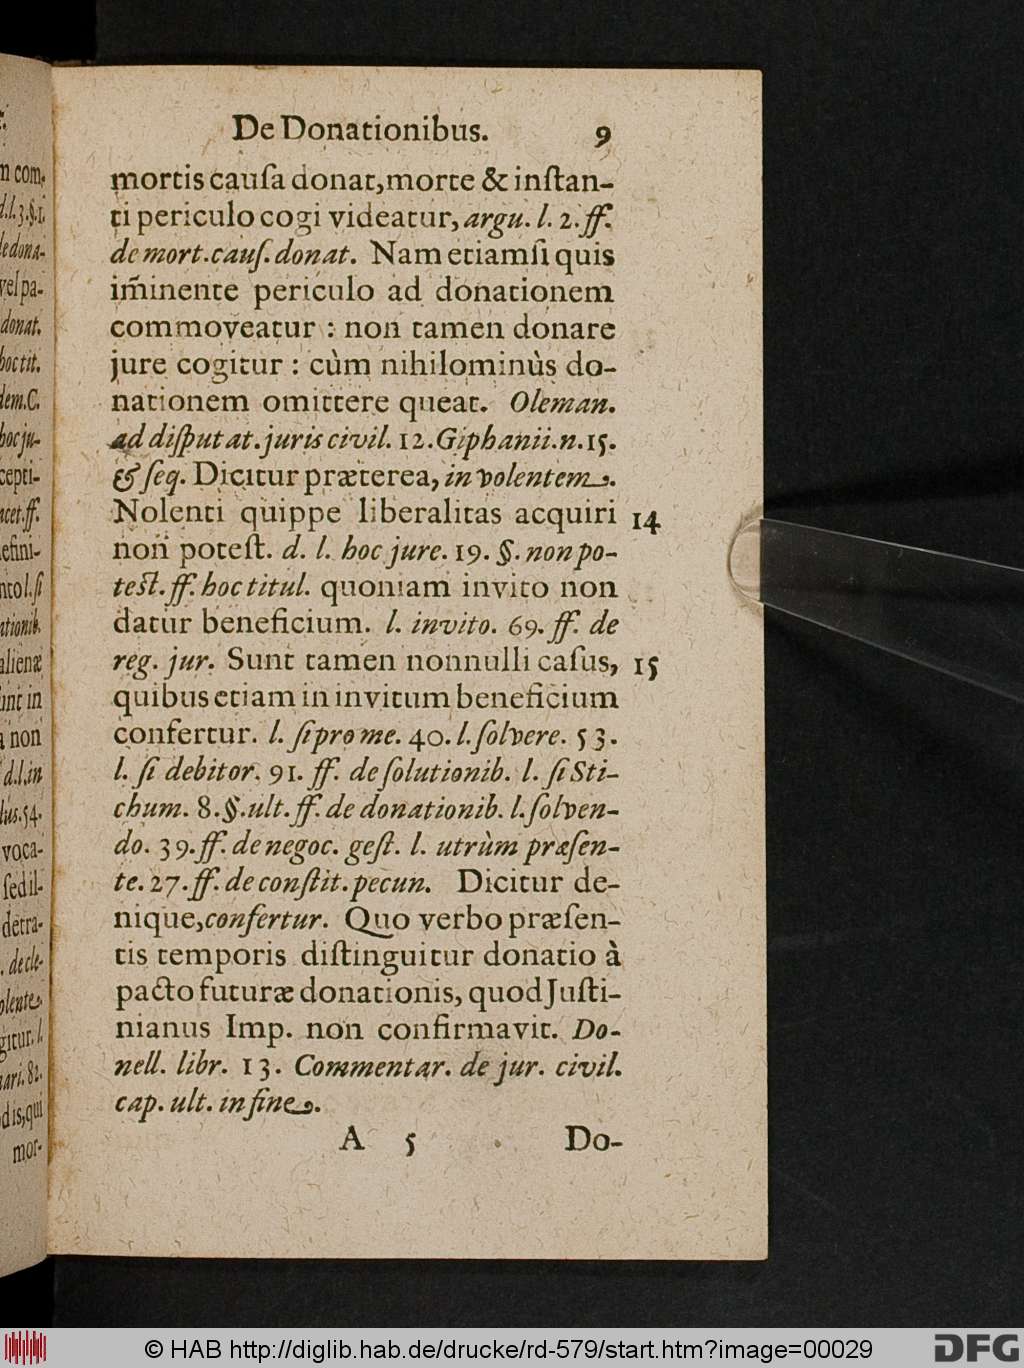 De Donationibus. 9
mortis causa donat, morte & instan-
ti periculo cogi videatur, argu. l. 2. ff.
de mort. caus. donat. Nam etiamsi quis
im̃inente periculo ad donationem
commoveatur : non tamen donare
jure cogitur : cùm nihilominùs do-
nationem omittere queat. Oleman.
ad disputat. juris civil. 12. Giphanii. n. 15.
& seq. Dicitur præterea, in volentem.
Nolenti quippe liberalitas acquiri 14
non potest. d. l. hoc jure. 19. §. non po-
test. ff. hoc titul. quoniam invito non
datur beneficium. l. invito. 69. ff. de
reg. jur. Sunt tamen nonnulli casus, 15
quibus etiam in invitum beneficium
confertur. l. si pro me. 40. l. solvere. 53.
l. si debitor. 91. ff. de solutionib. l. si Sti-
chum. 8. §. ult. ff. de donationib. l. solven-
do. 39. ff. de negoc. gest. l. utrùm præsen-
te. 27. ff. de constit. pecun. Dicitur de-
nique, confertur. Quo verbo præsen-
tis temporis distinguitur donatio à
pacto futuræ donationis, quod Justi-
nianus Imp. non confirmavit. Do-
nell. libr. 13. Commentar. de jur. civil.
cap. ult. in fine.
A 5 Do-
© HAB http://diglib.hab.de/drucke/rd-579/start.htm?image=00029
DFG